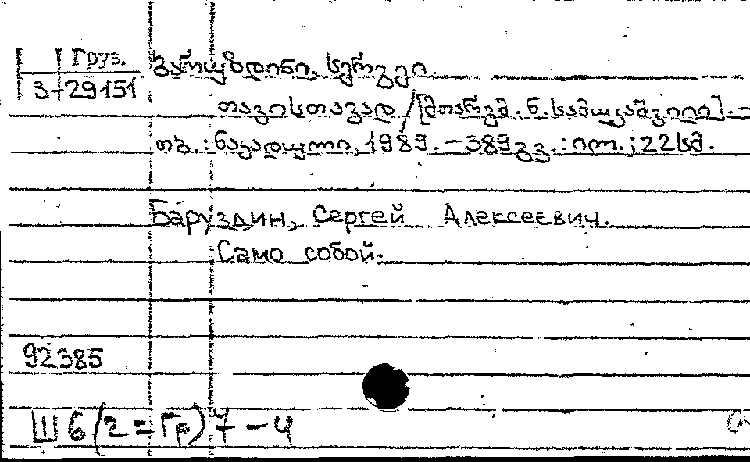 Груз.
ბარუზდინი, სერგეი
3-29151
თავისთავად / [მთარგმ. ნ. სამყაშვილი] -
თბ. : ნაკადული, 1989. - 389 გვ. : ილ. ; 22 სმ.
Баруздин, Сергей Алексеевич.
Само собой.
92385
Ш 6(2=Гр)7-4